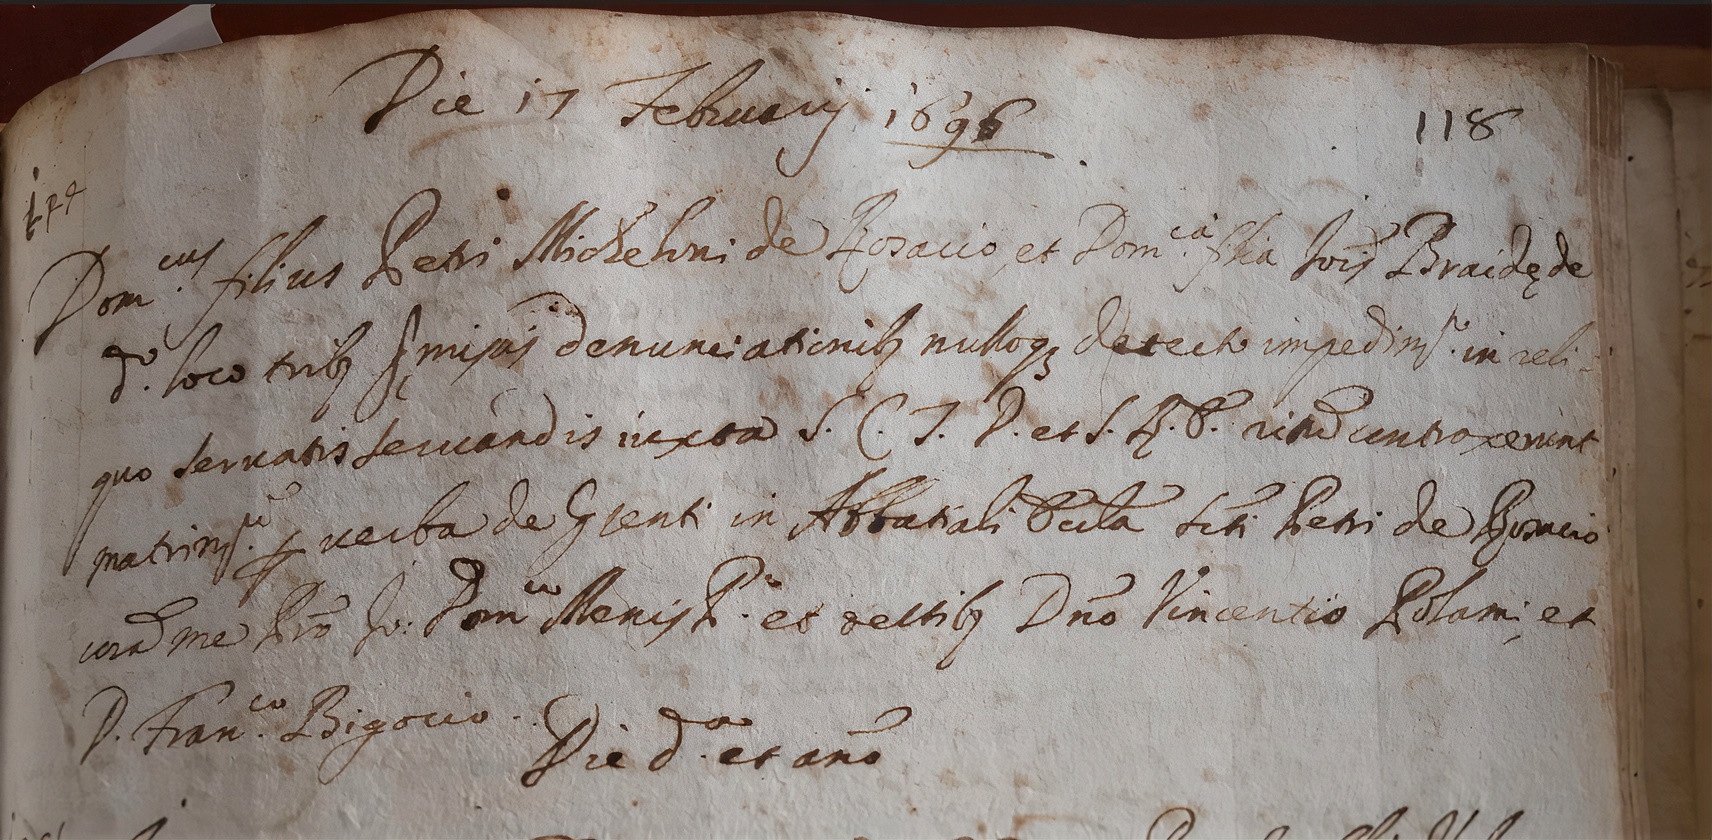 Die 17 Februarij 1696
118
Dom.cus filius Petri Michelini de Rosacio, et Dom.ca filia Jois Braidę de
do. loco trib9 p̱missis denunciationib9 nulloq3 detecto impedimto. in reli-
quo servatis servandis iuxta S. C. T. D. et S. R. E. ritū contraxerunt
matrimm. p verba de Gsenti in Abbatiali Eccla Scti Petri de Rosacio
corā me Pro Jo: Domco Menis P. et testib9 Dno Vincentio Rolami, et
D. Franco. Bigocio.
Die da. et anō